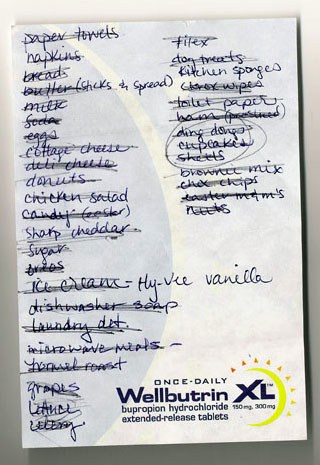 paper towels
napkins
bread
butter (sticks & spread)
milk
soda
eggs
cottage cheese
deli cheese
donuts
chicken salad
candy (easter)
sharp cheddar
sugar
oreos
ice cream - Hy-Vee vanilla
dishwasher soap
laundry det.
microwave meals -
hormel roast
grapes
lettuce
celery
tilex
dog treats
kitchen sponges
clorox wipes
toilet paper
ham (presliced)
ding dongs
cupcakes
shells
brownie mix
choc chips
easter m&m's
nuts
ONCE-DAILY
Wellbutrin XL™
bupropion hydrochloride 150 mg, 300 mg
extended-release tablets